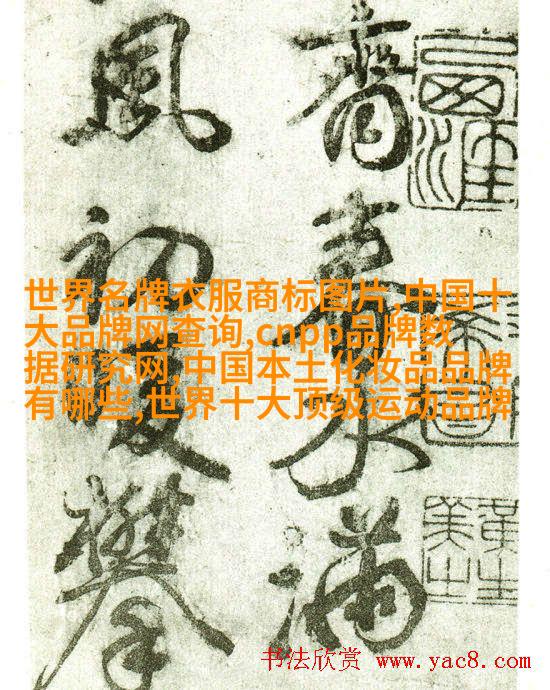 春水滿
風初攀
世界名牌衣服商标图片,中国十
大品牌网查询,cnpp品牌数
据研究网,中国本土化妆品品牌
有哪些,世界十大顶级运动品牌
书法欣赏 www.yac8.com